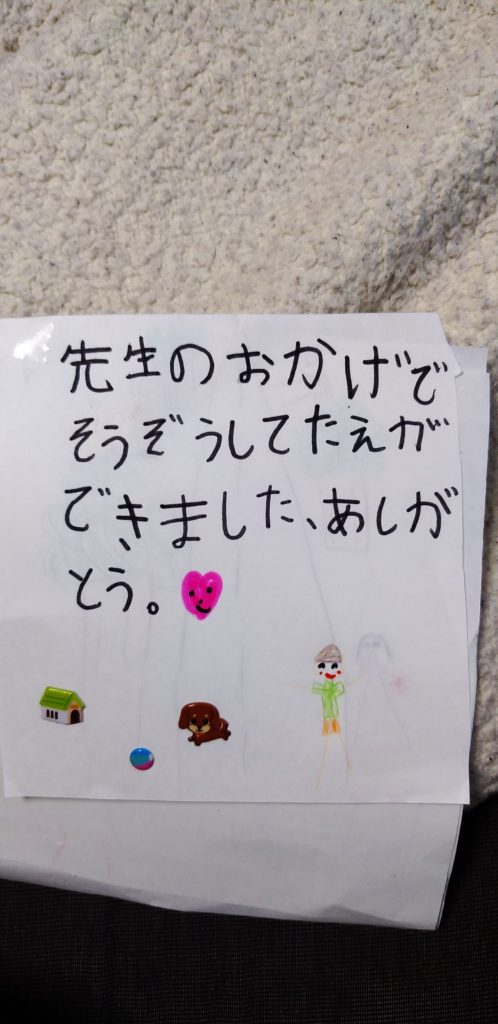 先生のおかげで
そうぞうしてたえが
できました、あしが
とう。